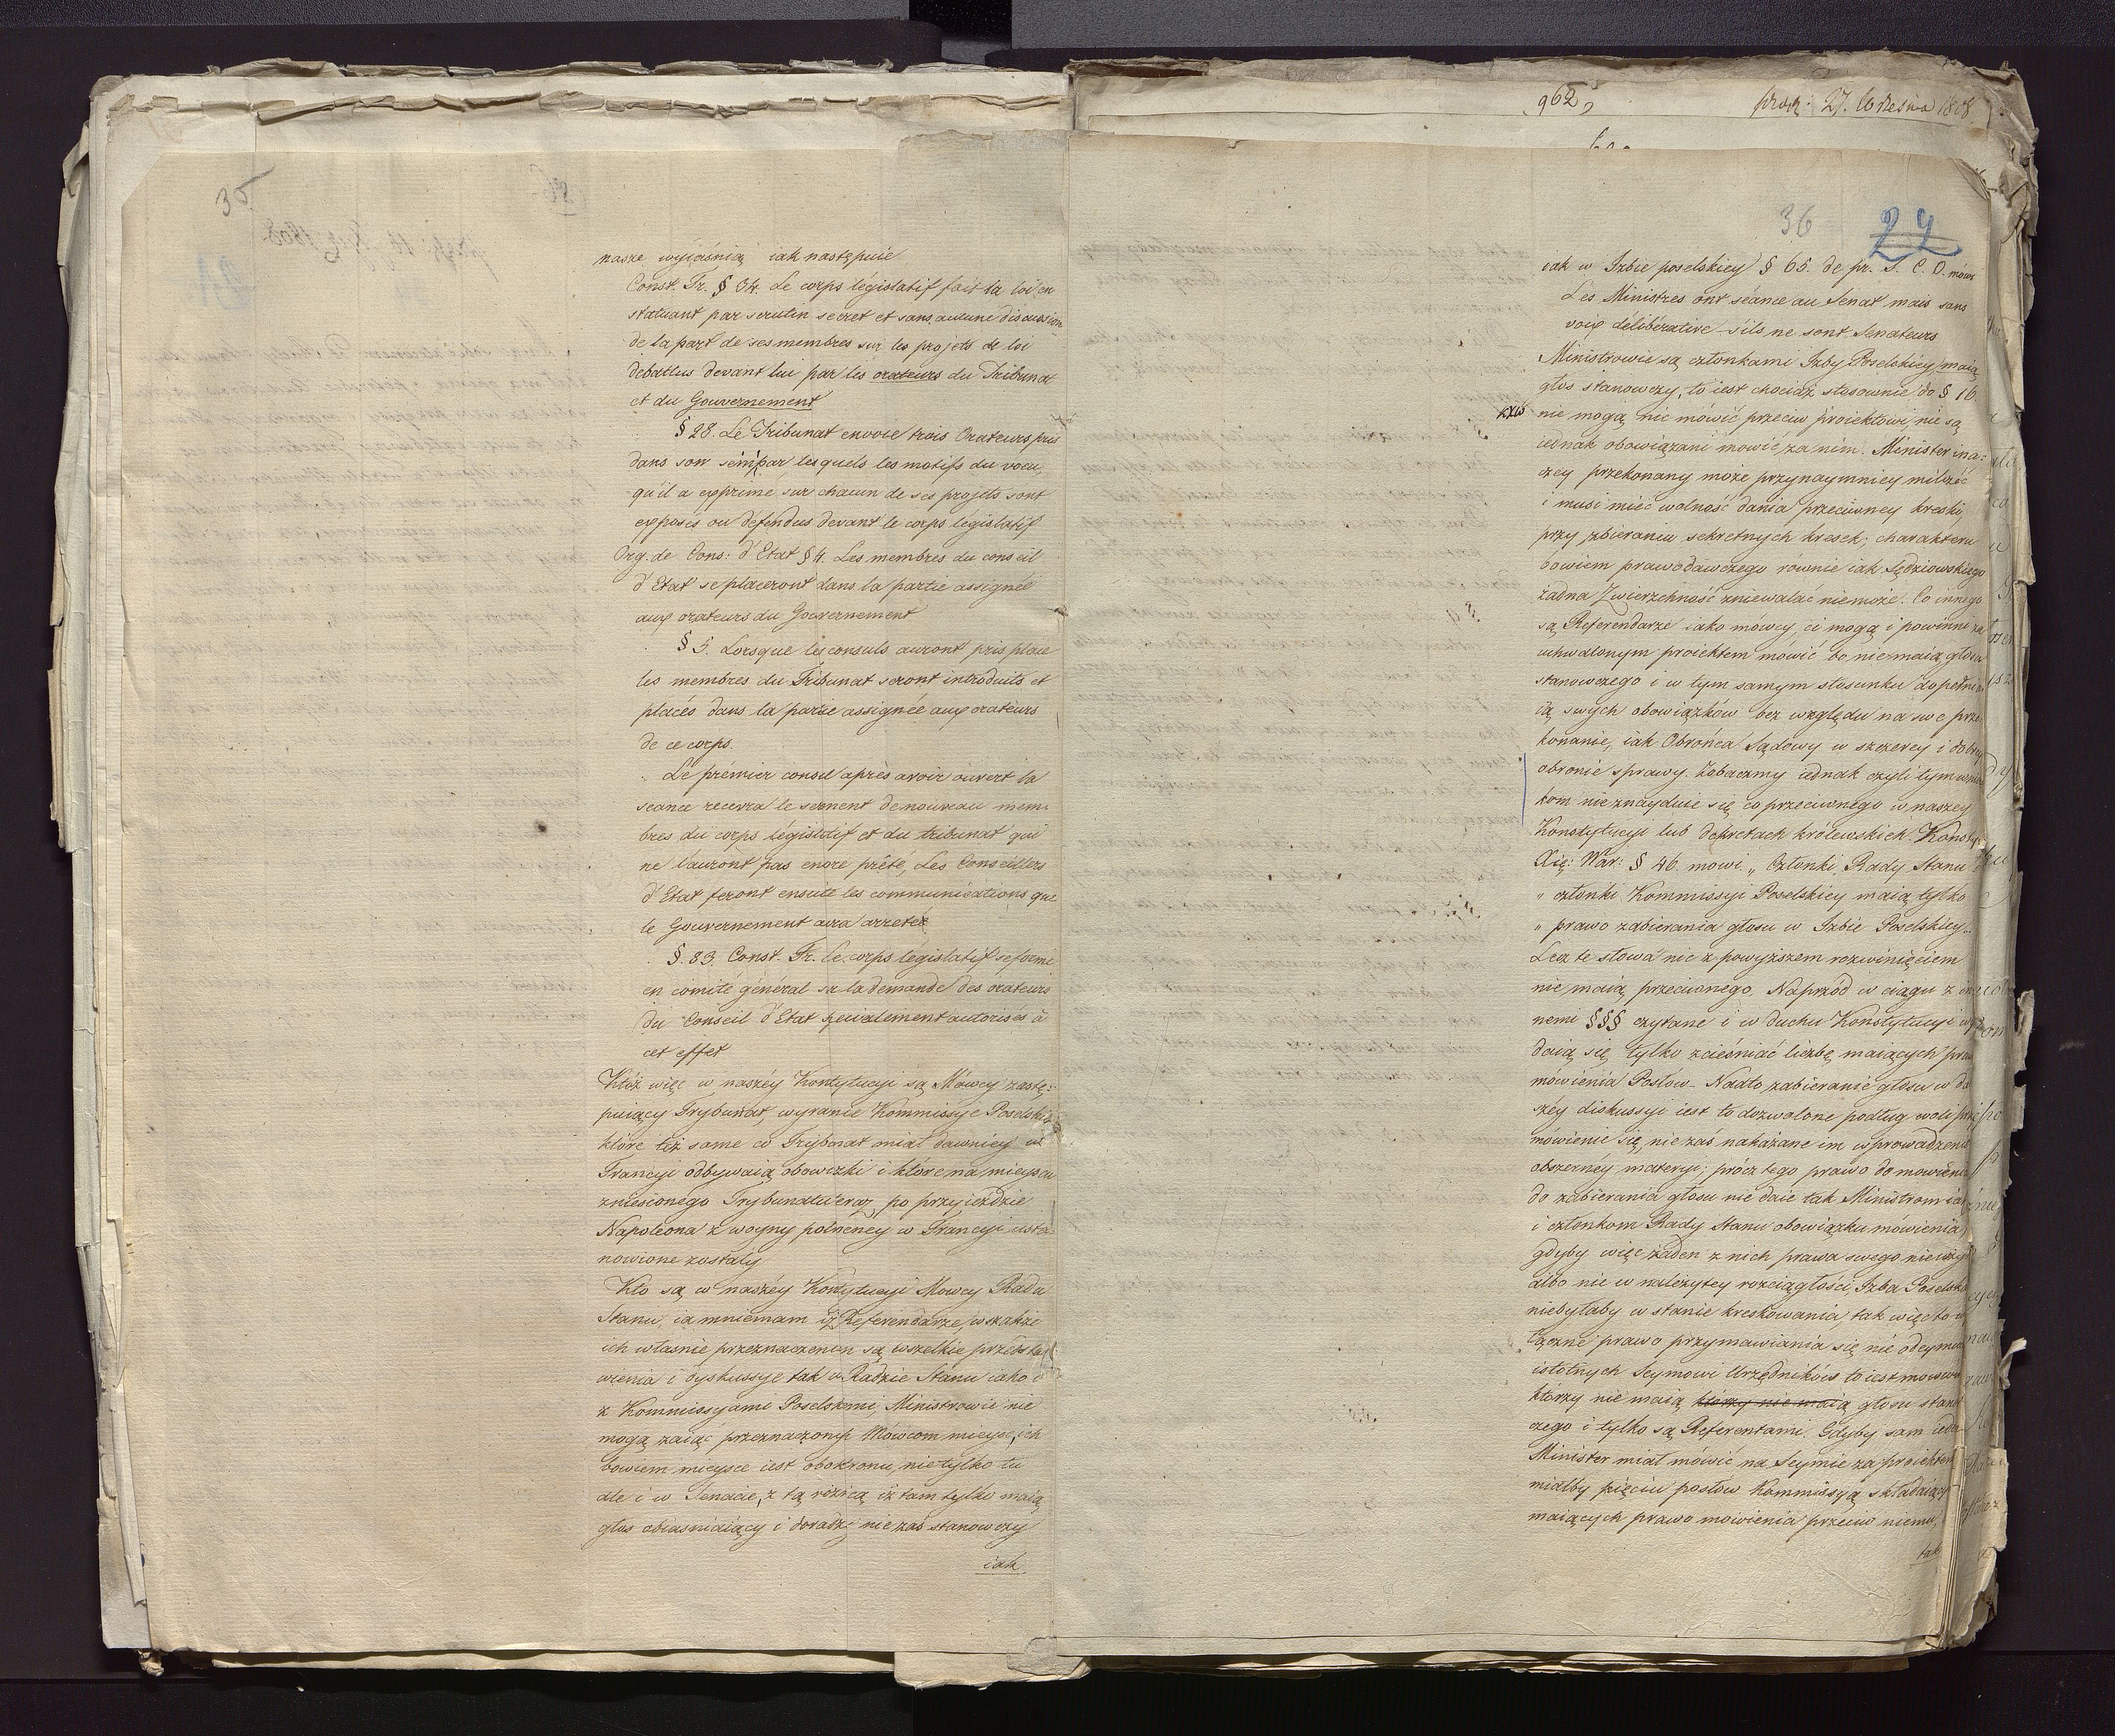 35
nasze wyjaśnią iak następuie
Const. Fr. § 34. Le corps législatif fait la loi en
statuant par scrutin secret et sans aucune discussion
de la part de ses membres sur les projets de loi
debattus devant lui par les orateurs du Tribunat
et du Gouvernement
§ 28. Le Tribunat envoie trois Orateurs pris
dans son sein par lesquels les motifs du voeu,
qu'il a exprimé sur chacun de ses projets sont
exposés ou défendus devant le corps législatif
Org. de Cons: d'Etat § 4. Les membres du conseil
d'Etat se placeront dans la partie assignée
aux orateurs du Gouvernement
§ 5. Lorsque les consuls auront pris place
les membres du Tribunat seront introduits et
placés dans la partie assignée aux orateurs
de ce corps.
Le prémier consul après avoir ouvert la
seance recevra le serment de nouveau mem-
bres du corps législatif et du tribunat qui
ne l'auront pas encore prêté, Les Conseillers
d'Etat feront ensuite les communications que
le Gouvernement aura arreteé
§. 83. Const. Fr. Le corps législatif se forme
en comité général sa la demande des orateurs
du Conseil d'Etat specialement autorisés à
cet effet
Któż więc w naszéy Kontytucyi są Mówcy zastę-
puiący Trybunat, wyranie Kommissye Poselskie
które też same co Trybunat miał dawniey we
Francyi odbywaią obowizki i które na mieyscu
zniesionego Trybunatu teraz po przyieździe
Napoleona z woyny połneney w Francyi usta-
nowione zostały
Kto są w naszéy Kontytucyi Mowcy Rady
Stanu, ia mniemam iż Referendarze, wszakże
ich własnie przeznaczeniem są wszelkie przedsta-
wienia i dyskussye tak w Radzie Stanu iako i
z Kommissyami Poselskiemi, Ministrowie nie
mogą zaiąć przeznaczonych Mówcom mieysc, ich
bowiem mieysce iest obok tronu, nie tylko tu
ale i w Senacie, z tą różnicą iż tam tylko maią
głos obiasniaiący i doradzc nie zaś stanowczy
iak
962,
prez: 27. Września 1808
36
24
iak w Izbie poselskiey § 65. de pr. S. C. O. mówi
Les Ministres ont séance au Senat mais sans
voix délibérative s'ils ne sont Senateurs
Ministrowie są członkami Izby Poselskiéy, maią
głos stanowczy, to iest chociaż stosownie do § 16
nie mogą nic mówić przeciw proiektowi, nie są
iednak obowiązani mowić za nim. Minister ina-
czey przekonany może przynaymniey milczéć
i musi mieć wolność dania przeciwney kreski,
przy zbieraniu sekretnych kresek; charakteru
bowiem prawodawczego równie iak Sędziowskiego
żadna Zwierzchność zniewalać niemoże. Co innego
są Referendarze iako mowcy, ci mogą i powinni za
uchwalonym proiektem mówić bo nie maią głosu
stanowczego i w tym samym stosunku dopełnia-
ią swych obowiązków bez względu na swe prze-
konanie, iak Obrońca Sądowy w szczerey i dobrey
obronie sprawy. Zobaczmy iednak czyli tym wnios-
kom nie znayduie się co przeciwnego w naszey
Konstytucyi lub dekretach królewskich. Konsty:
Xię: War: § 46. mowi „ Członki Rady Stanu i
„ członki Kommissyi Poselskiey maią tylko
„ prawo zabierania głosu w Izbie Poselskiey.„
Lecz te słowa nic z powyższem rozwinięciem
nie maią przeciwnego. Naprzód w ciągu z in-
nemi §§§ czytane i w duchu Konstytucyi wy-
daią się tylko zcieśniać liczbę maiących prawo
mówienia Posłów. Nadto zabieranie głosu w da-
széy diskussyi iest to dozwolone podług woli przy-
mówienie się, nie zaś nakazane im wprowadzenie
obszernéy materyi; prócz tego prawo do mowienia
do zabierania głosu nie daie tak Ministrom iak
i członkom Rady Stanu obowiązku mówienia,
gdyby więc żaden z nich prawa swego nie użył
albo nie w należytey rozciągłości, Izba Poselska
niebyłaby w stanie kreskowania, tak więc to
łączne prawo przymawiania się nie odeymuie
istotnych Seymowi Urzędników to iest mowców
którzy nie maią którzy nie maią głosu stanow-
czego i tylko są Referentami. Gdyby sam ieden
Minister miał mówić na Seymie za proiektem
miałby pięciu posłów Kommissyą składaiących
maiących prawo mowienia przeciw niemu,
tak